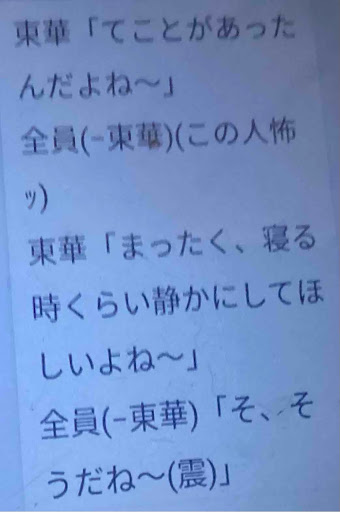 東華「てことがあった
んだよね〜」
全員(-東華)(この人怖
ッ)
東華「まったく、寝る
時くらい静かにしてほ
しいよね〜」
全員(-東華)「そ、そ
うだね〜(震)」